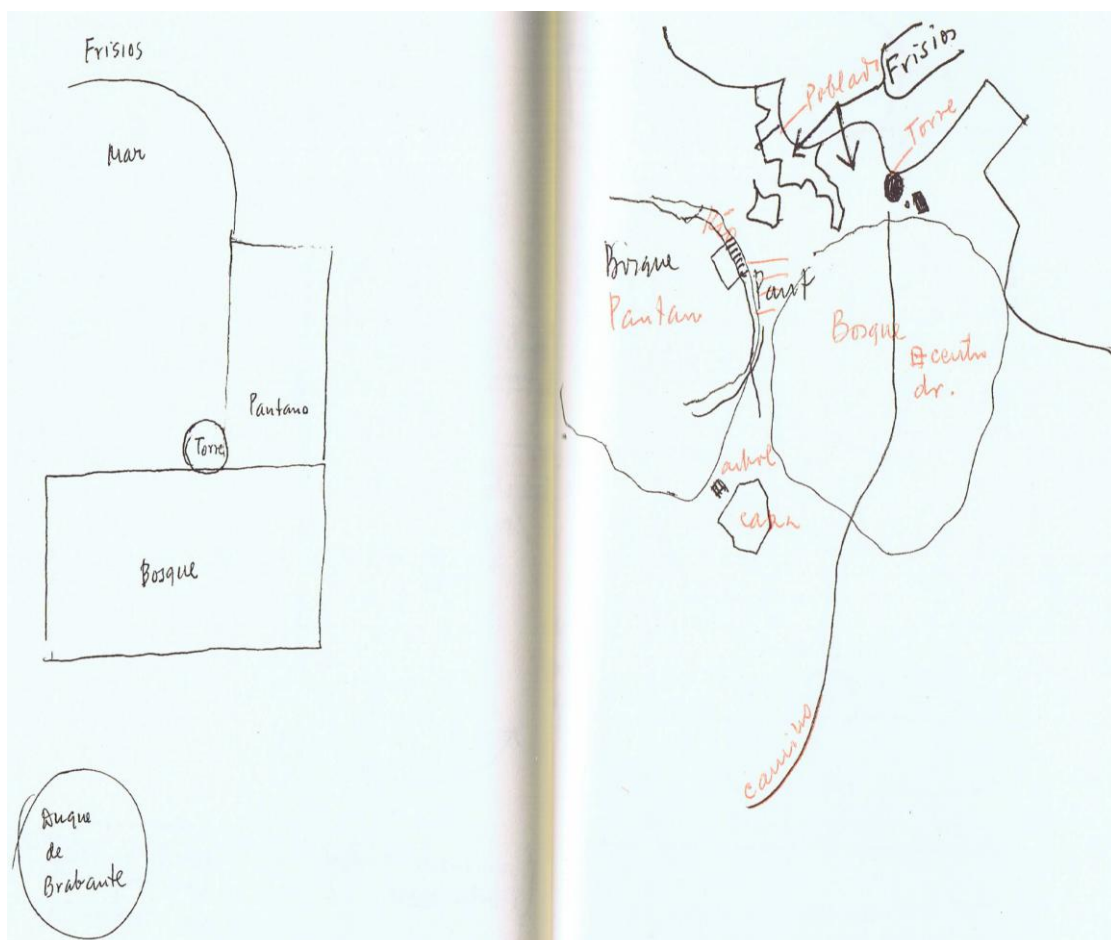 Frisios
Mar
Pantano
Torre
Bosque
Duque
de
Brabante
Frisios
Poblado
Torre
Río
Bosque
Pantano
Bosque
centro
dr.
arbol
camino